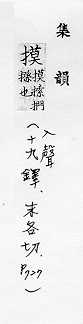 集韻
摸
摸捫
也
(入聲
十九鐸.末各切.P727)